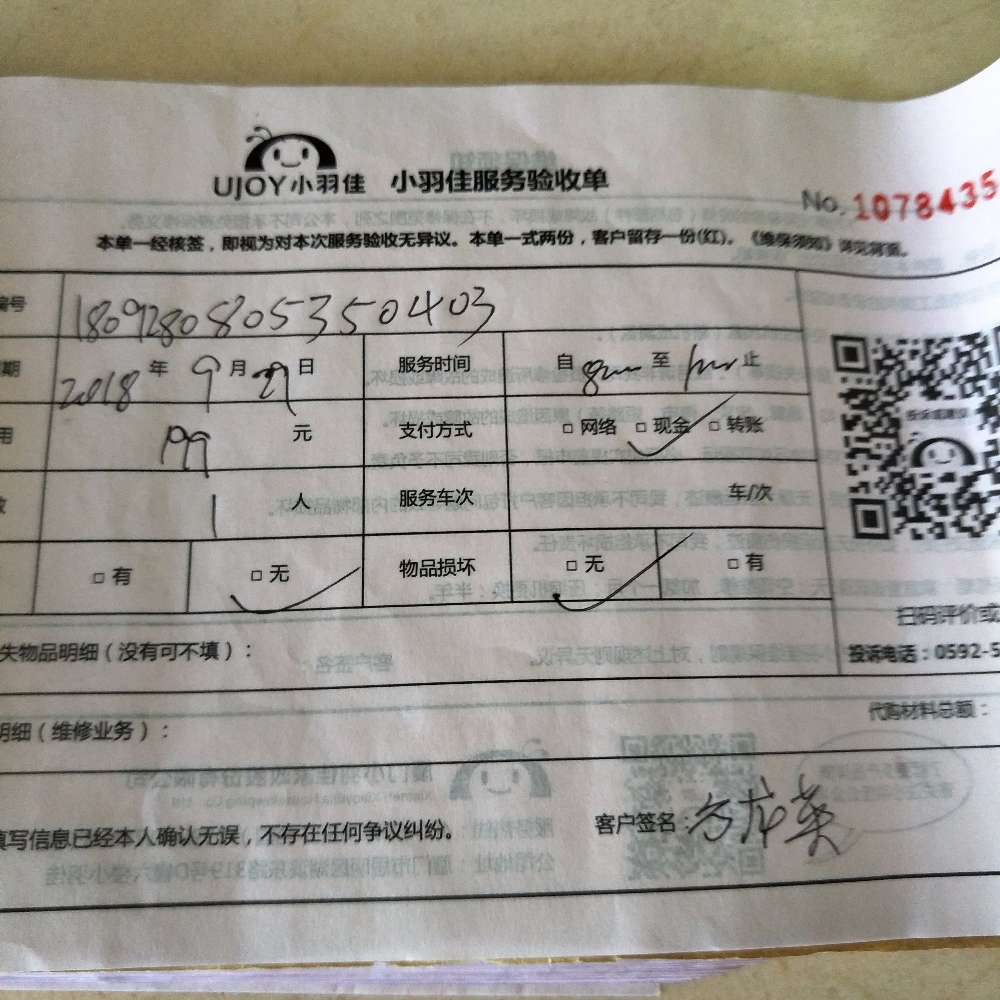 UJOY小羽佳 小羽佳服务验收单
No. 1078435
本单一经核签，即视为对本次服务验收无异议。本单一式两份，客户留存一份(红)。《维保须知》详见背面。
编号 180928080535040​3
期 2018 年 9 月 29 日 服务时间 自 8:00 至 1:00 止
用 199 元 支付方式 □ 网络 □ 现金 □ 转账
数 1 人 服务车次 车/次
□ 有 □ 无 物品损坏 □ 无 □ 有
投诉或建议
扫码评价或
投诉电话：0592-5
失物品明细（没有可不填）：
明细（维修业务）： 代购材料总额：
填写信息已经本人确认无误，不存在任何争议纠纷。 客户签名：方龙英